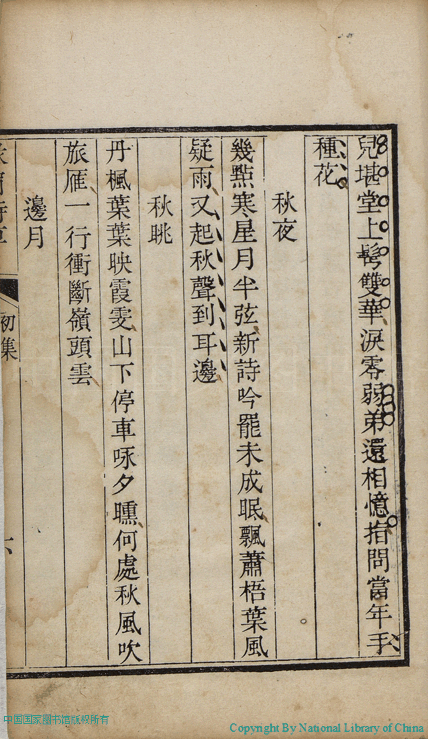 兒堪堂上髩雙華淚零弱弟還相憶指問當年手
種花
秋夜
幾㸃寒星月半弦新詩吟罷未成眠飄蕭梧葉風
疑雨又起秋聲到耳邊
秋眺
丹楓葉葉映霞雯山下停車咏夕曛何處秋風吹
旅雁一行衝斷嶺頭雲
邊月
初集
中国国家图书馆版权所有
Copyright By National Library of China